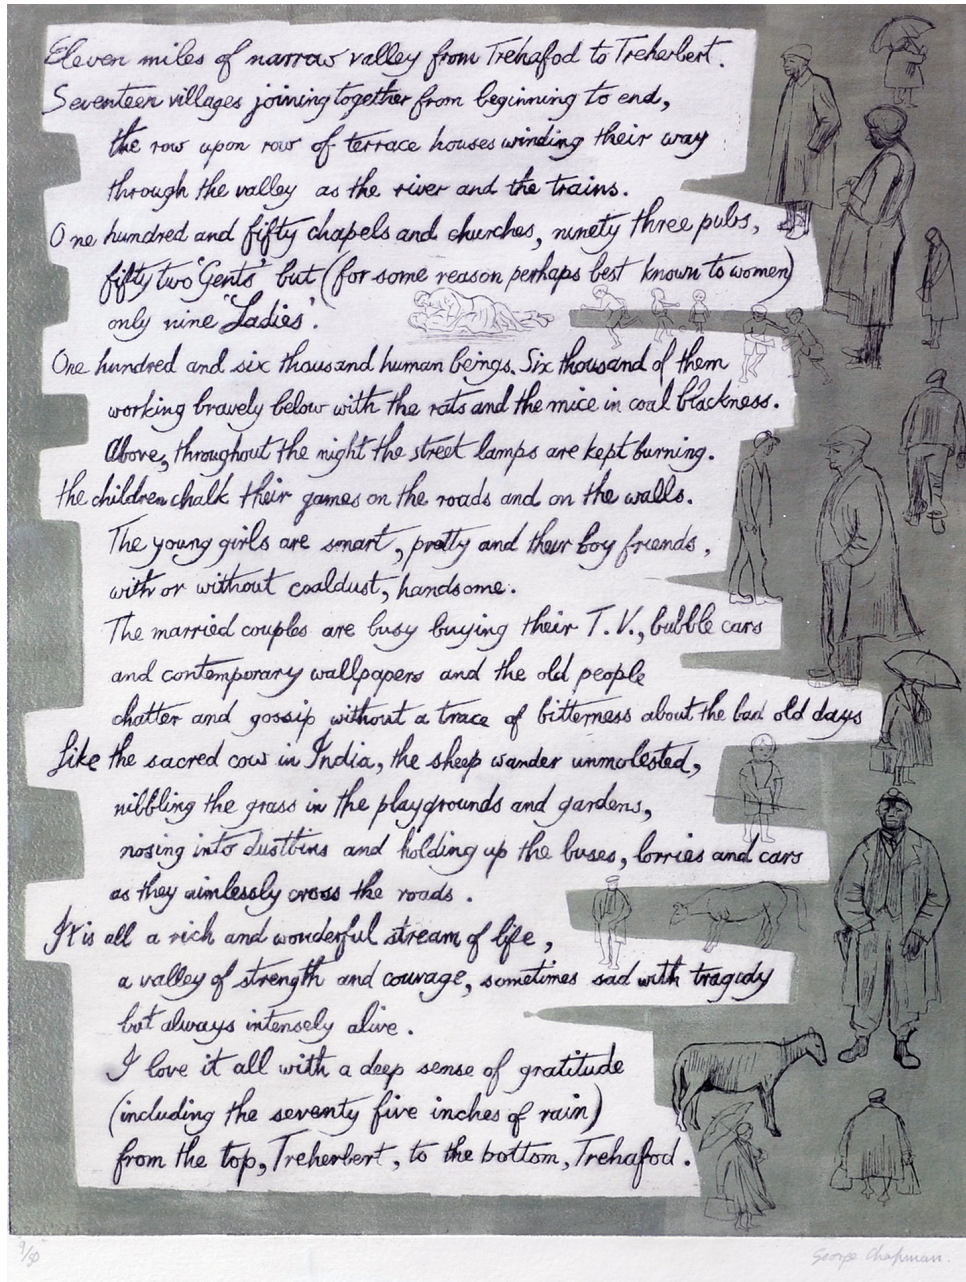 Eleven miles of narrow valley from Trehafod to Treherbert.
Seventeen villages joining together from beginning to end,
the row upon row of terrace houses winding their way
through the valley as the river and the trains.
One hundred and fifty chapels and churches, ninety three pubs,
fifty two 'Gents' but (for some reason perhaps best known to women)
only nine 'Ladies'.
One hundred and six thousand human beings. Six thousand of them
working bravely below with the rats and the mice in coal blackness.
Above, throughout the night the street lamps are kept burning.
the children chalk their games on the roads and on the walls.
The young girls are smart, pretty and their boy friends,
with or without coaldust, handsome.
The married couples are busy buying their T.V., bubble cars
and contemporary wallpapers and the old people
chatter and gossip without a trace of bitterness about the bad old days
Like the sacred cow in India, the sheep wander unmolested,
nibbling the grass in the playgrounds and gardens,
nosing into dustbins and holding up the buses, lorries and cars
as they aimlessly cross the roads.
It is all a rich and wonderful stream of life,
a valley of strength and courage, sometimes sad with tragedy
but always intensely alive.
I love it all with a deep sense of gratitude
(including the seventy five inches of rain)
from the top, Treherbert, to the bottom, Trehafod.
9/50 George Chapman.